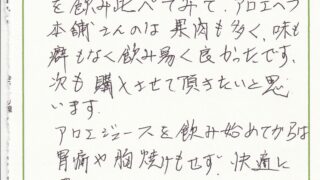 を飲み比べてみて、アロエベラ
本舗さんのは果肉も多く、味も
癖もなく飲み易く良かったです。
次も購入させて頂きたいと思
います。
アロエジュースを飲み始めてからは
胃痛や胸焼けもせず、快適に